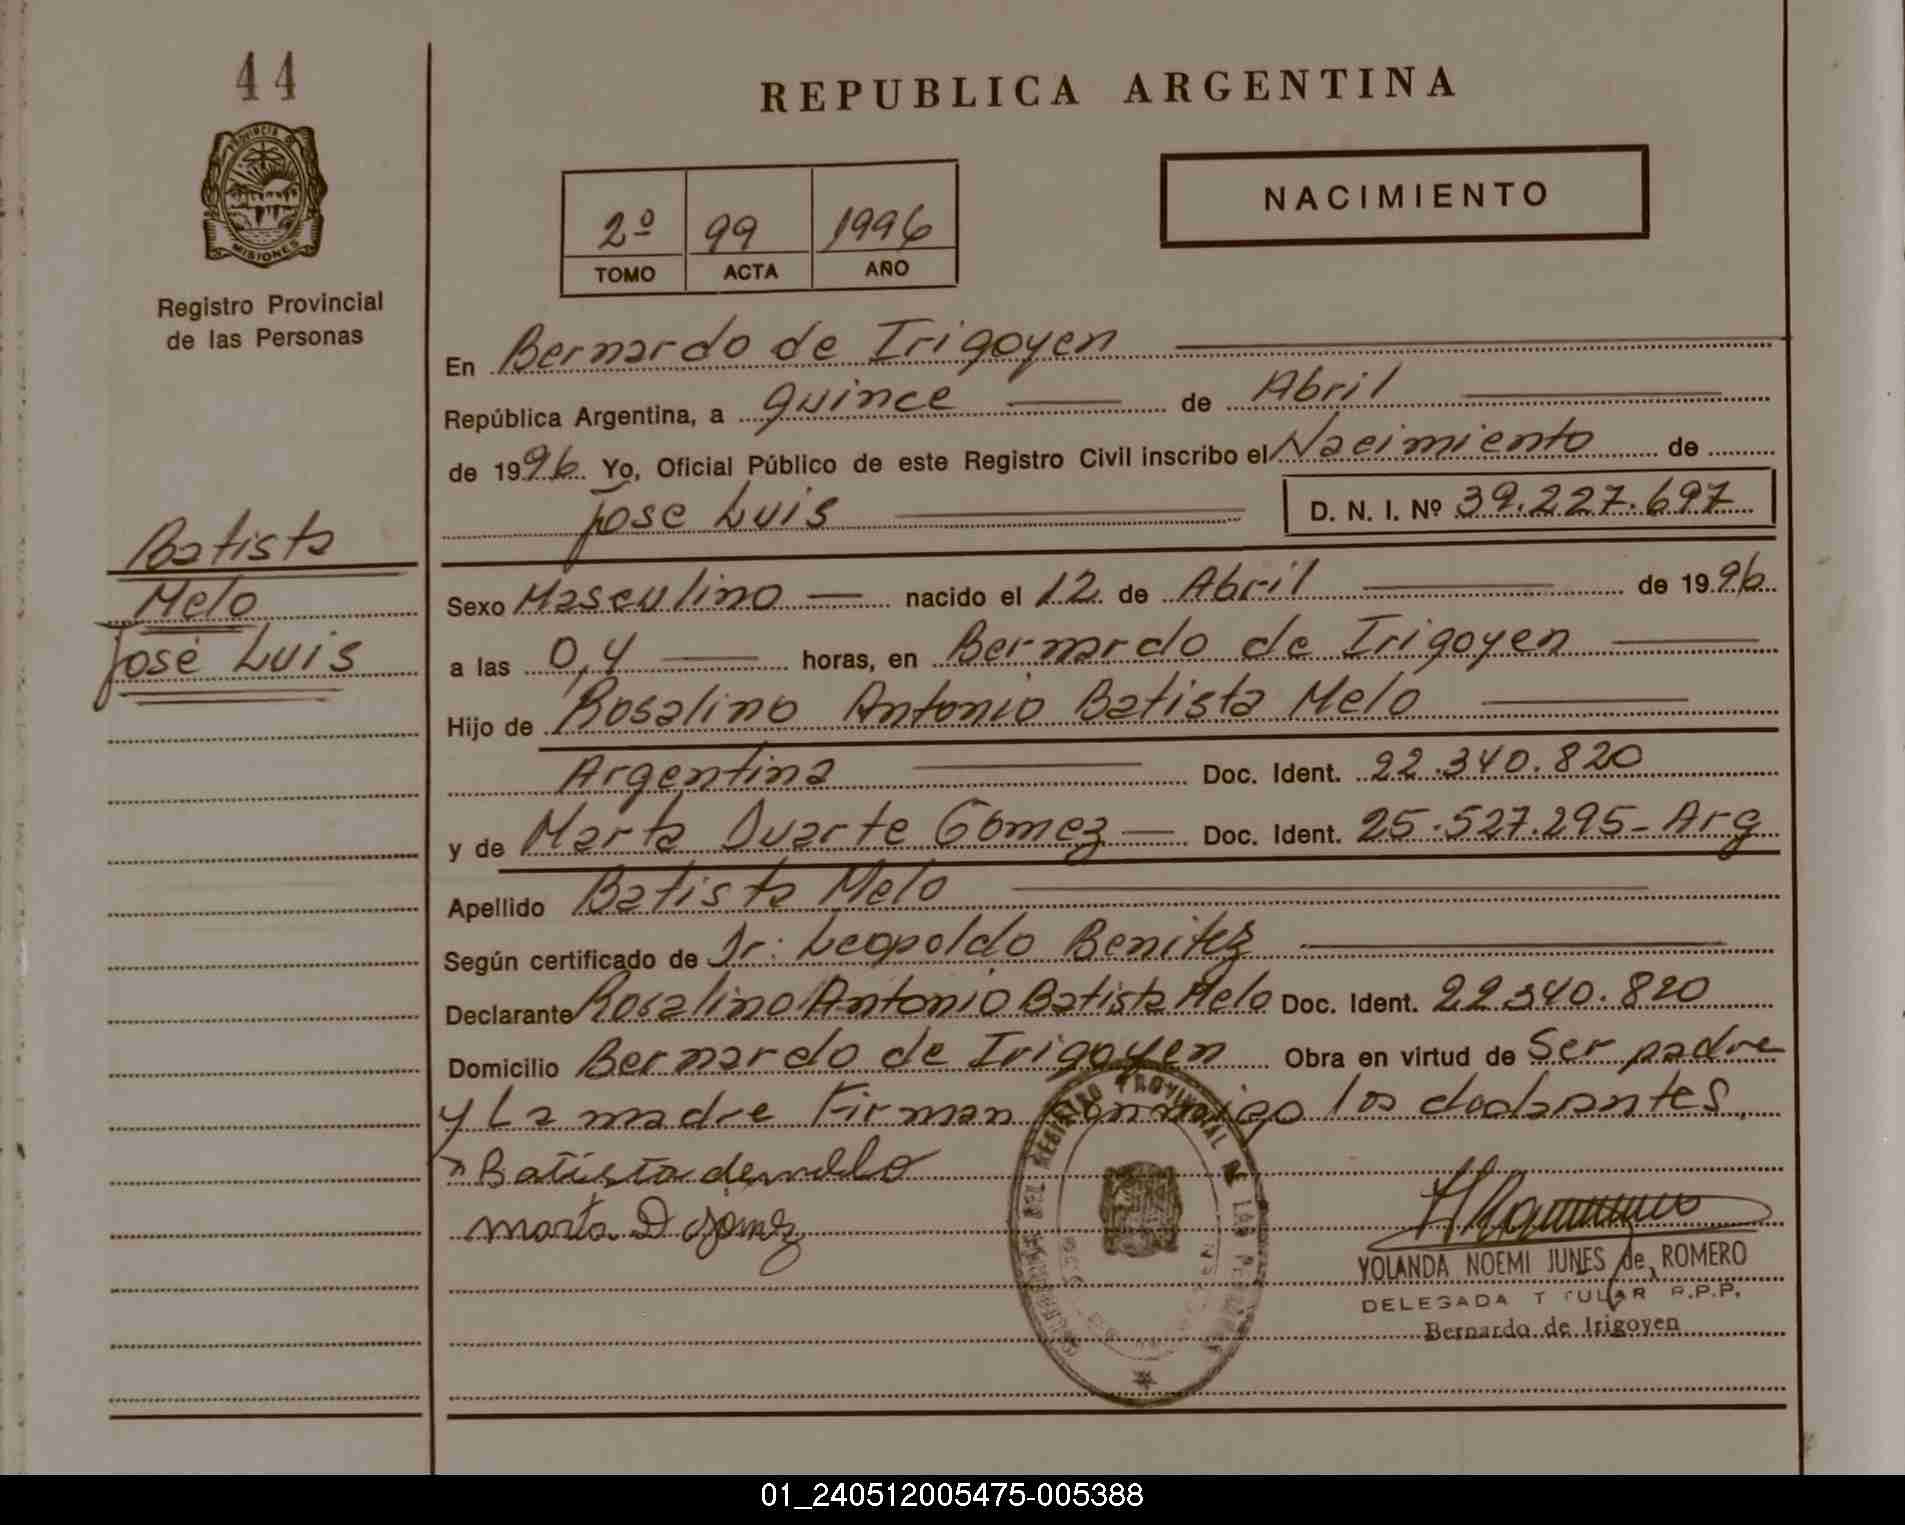 44
REPUBLICA ARGENTINA
PROVINCIA DE
MISIONES
Registro Provincial
de las Personas
NACIMIENTO
2º 99 1996
TOMO ACTA AÑO
En Bernardo de Irigoyen
República Argentina, a quince de Abril
de 1996 Yo, Oficial Público de este Registro Civil inscribo el Nacimiento de
Jose Luis D. N. I. Nº 39.227.697
Batista
Melo
José Luis
Sexo Masculino nacido el 12 de Abril de 1996
a las 0,4 horas, en Bernardo de Irigoyen
Hijo de Rosalino Antonio Batista Melo
Argentina Doc. Ident. 22.340.820
y de Marta Duarte Gómez Doc. Ident. 25.527.295- Arg
Apellido Batista Melo
Según certificado de Dr: Leopoldo Benitez
Declarante Rosalino Antonio Batista Melo Doc. Ident. 22340.820
Domicilio Bernardo de Irigoyen Obra en virtud de Ser padre
y La madre Firman conmigo los
Batista
Marta D Gomez
REGISTRO PROVINCIAL DE LAS
YOLANDA NOEMI JUNES de ROMERO
DELEGADA TITULAR R.P.P.
Bernardo de Irigoyen
01_240512005475-005388